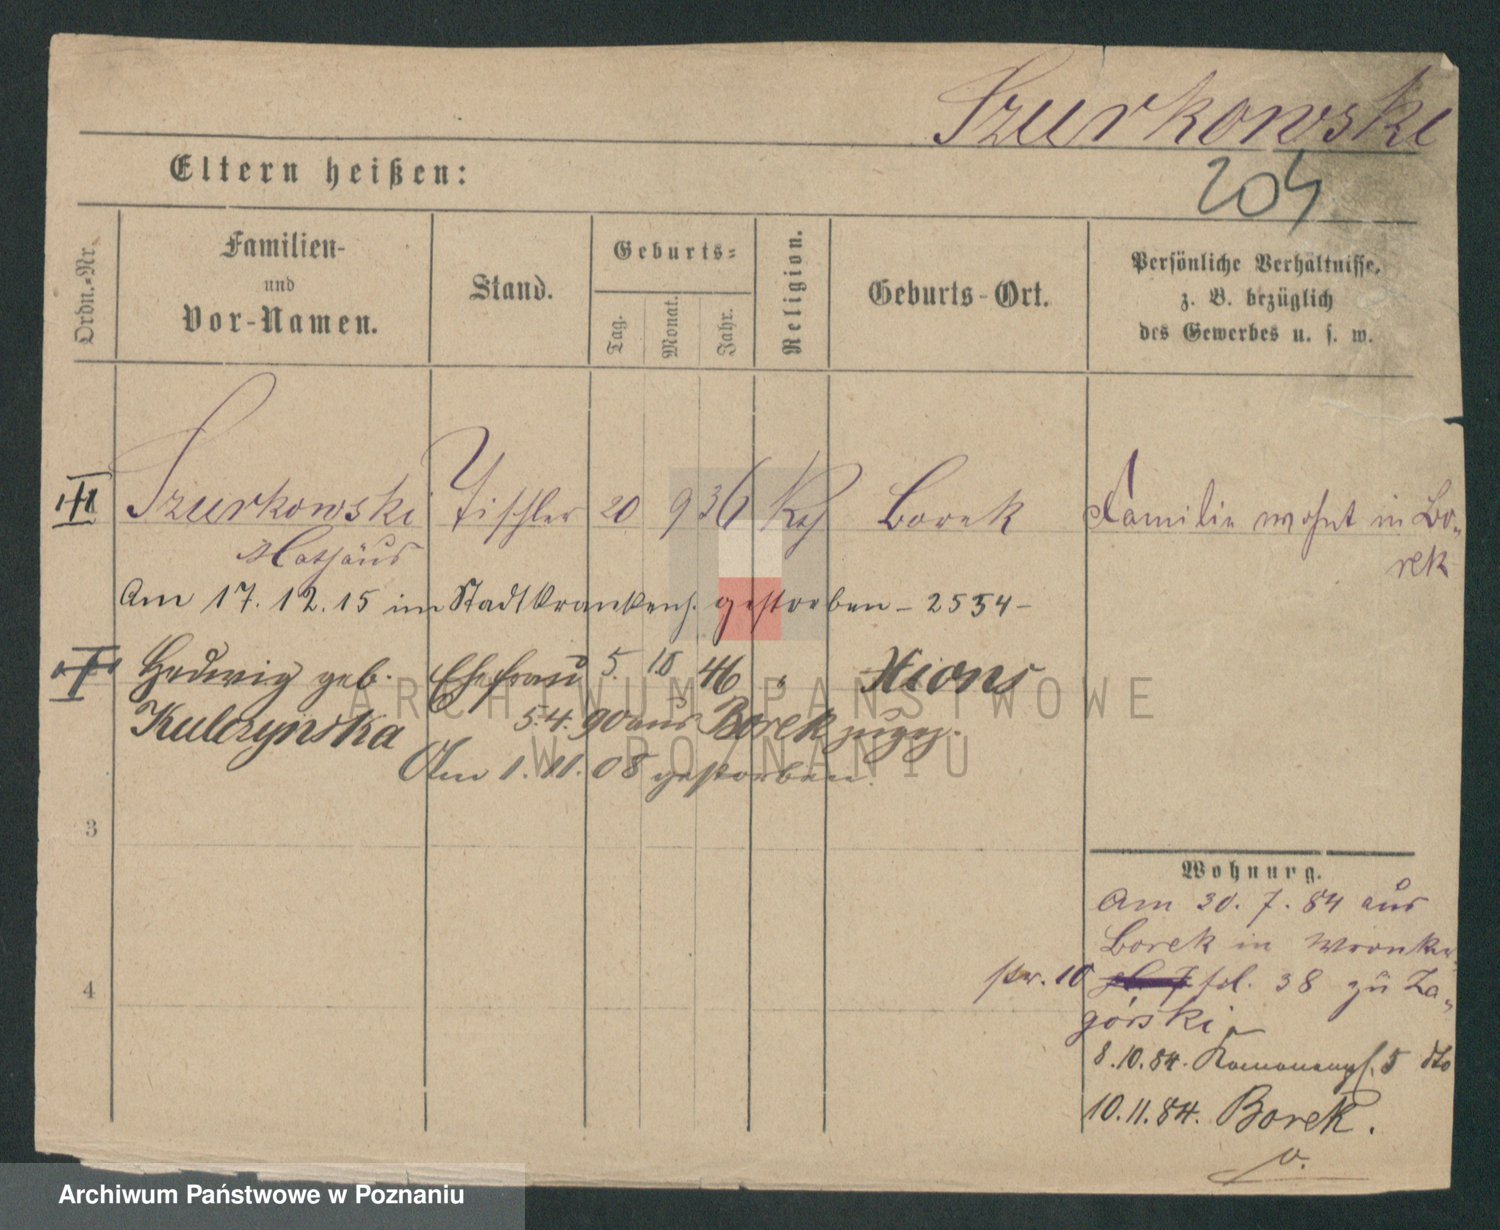 Szurkowski
204
Eltern heißen:
Ordn.-Nr.
Familien-
und
Vor-Namen.
Stand.
Geburts-
Tag.
Monat.
Jahr.
Religion.
Geburts-Ort.
Persönliche Verhältnisse,
z. B. bezüglich
des Gewerbes u. s. w.
Szurkowski Tischler 20 9 36 Kth Borek Familie wohnt in Bo-
Mathäus rek
Am 17. 12. 15 im Stadtkrankenh. gestorben - 2554 -
Hedwig geb. Ehefrau 5. 10 46 " Xions
Kulczynska 5.4.90 aus Borek zugez.
Am 1. 11. 08 gestorben.
3
Wohnung.
Am 30. 7. 84 aus
Borek in Wronker
4
str. 10 38 zu Za-
górski
8.10.84. 5 dto
10.11.84. Borek.
v.
ARCHIWUM PAŃSTWOWE
W POZNANIU
Archiwum Państwowe w Poznaniu